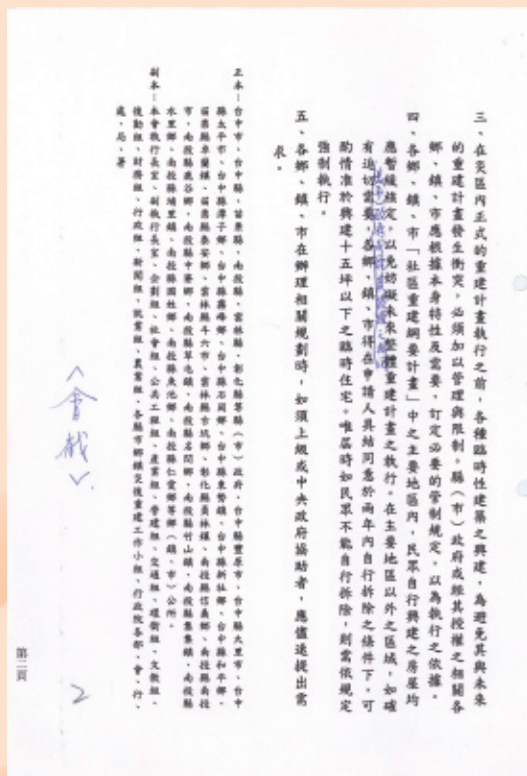 三、在災區內正式的重建計畫執行之前，各種臨時性建築之興建，為避免其與未來
的重建計畫發生衝突，必須加以管理與限制。縣（市）政府或經其授權之相關各
鄉、鎮、市應根據本身特性及需要，訂定必要的管制規定，以為執行之依據。
四、各鄉、鎮、市「社區重建綱要計畫」中之主要地區內，民眾自行興建之房屋均
應暫緩核定，以免妨礙未來整體重建計畫之執行。在主要地區以外之區域，如確
有迫切需要，各鄉、鎮、市得在申請人具結同意於兩年內自行拆除之條件下，可
酌情准於興建十五坪以下之臨時住宅。唯屆時如民眾不能自行拆除，則當依規定
強制執行。
五、各鄉、鎮、市在辦理相關規劃時，如須上級或中央政府協助者，應儘速提出需
求。
正本：台中市、台中縣、苗栗縣、南投縣、雲林縣、彰化縣等縣（市）政府，台中縣豐原市、台中縣大里市、台中
縣太平市、台中縣潭子鄉、台中縣霧峰鄉、台中縣石岡鄉、台中縣東勢鎮、台中縣新社鄉、台中縣和平鄉、
苗栗縣卓蘭鎮、苗栗縣泰安鄉、雲林縣斗六市、雲林縣古坑鄉、彰化縣員林鎮、南投縣信義鄉、南投縣南投
市、南投縣鹿谷鄉、南投縣中寮鄉、南投縣草屯鎮、南投縣名間鄉、南投縣竹山鎮、南投縣集集鎮、南投縣
水里鄉、南投縣埔里鎮、南投縣國姓鄉、南投縣魚池鄉、南投縣仁愛鄉等鄉（鎮、市）公所。
副本：本會執行長室、副執行長室、企劃組、社會組、公共工程組、產業組、營建組、交通組、環衛組、文教組、
後勤組、財務組、行政組、新聞組、就業組、農業組、各縣市鄉鎮災後重建工作小組、行政院各部、會、行、
處、局、署
〈會戳〉
第二頁
2